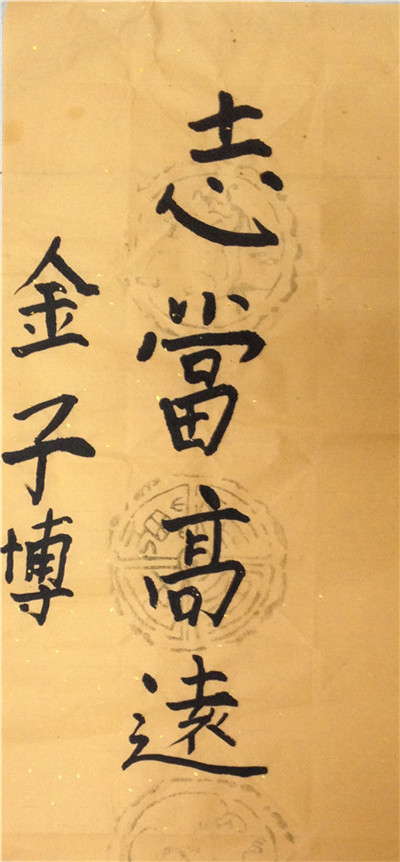 志當高遠
金子博